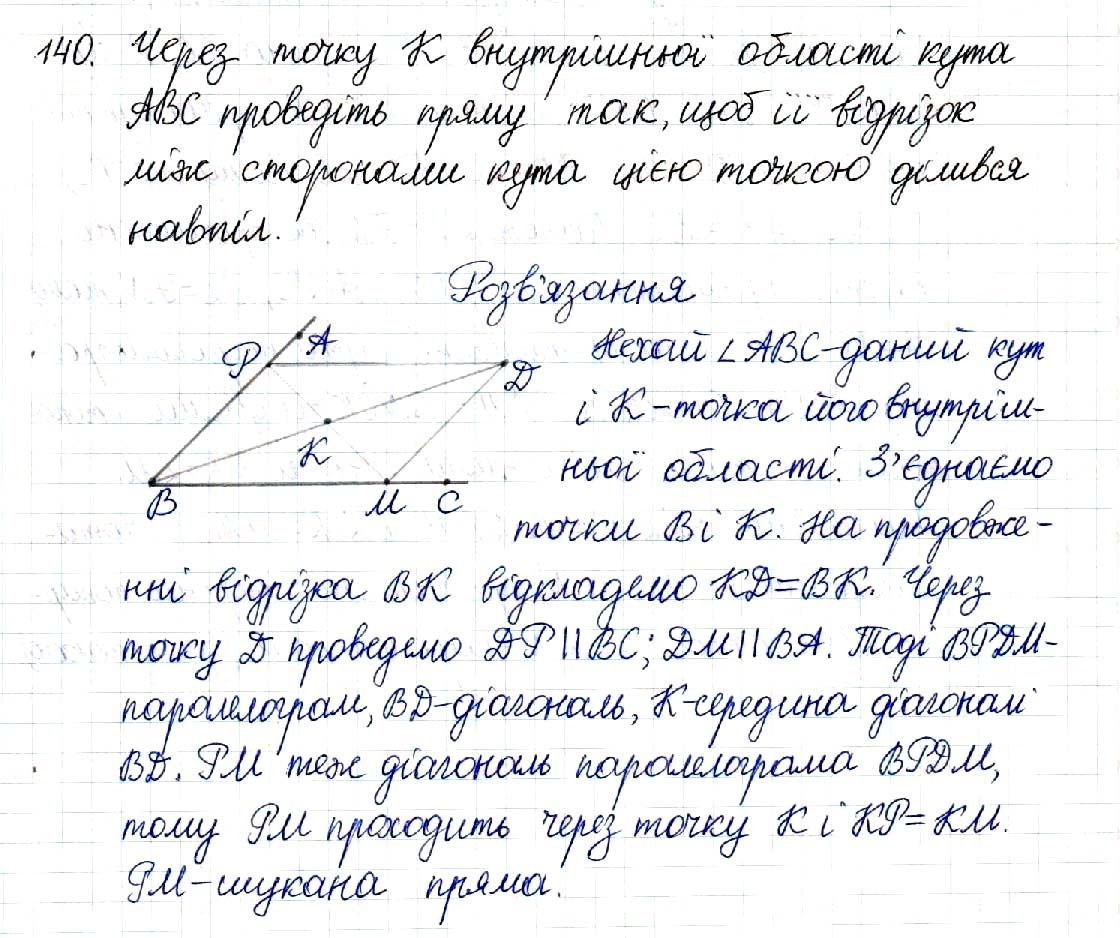 140. Через точку К внутрішньої області кута
АВС проведіть пряму так, щоб її відрізок
між сторонами кута цією точкою ділився
навпіл.
Розв'язання
Нехай ∠АВС-даний кут
і К-точка його внутріш-
ньої області. З'єднаємо
точки В і К. На продовже-
нні відрізка ВК відкладемо KD=ВК. Через
точку D проведемо DP||ВС; DM||ВА. Тоді ВPDM-
паралелограм, BD-діагональ, К-середина діагоналі
BD. РМ теж діагональ паралелограма ВPDM,
тому РМ проходить через точку К і КР=КМ.
РМ-шукана пряма.
P A D
K
B M C